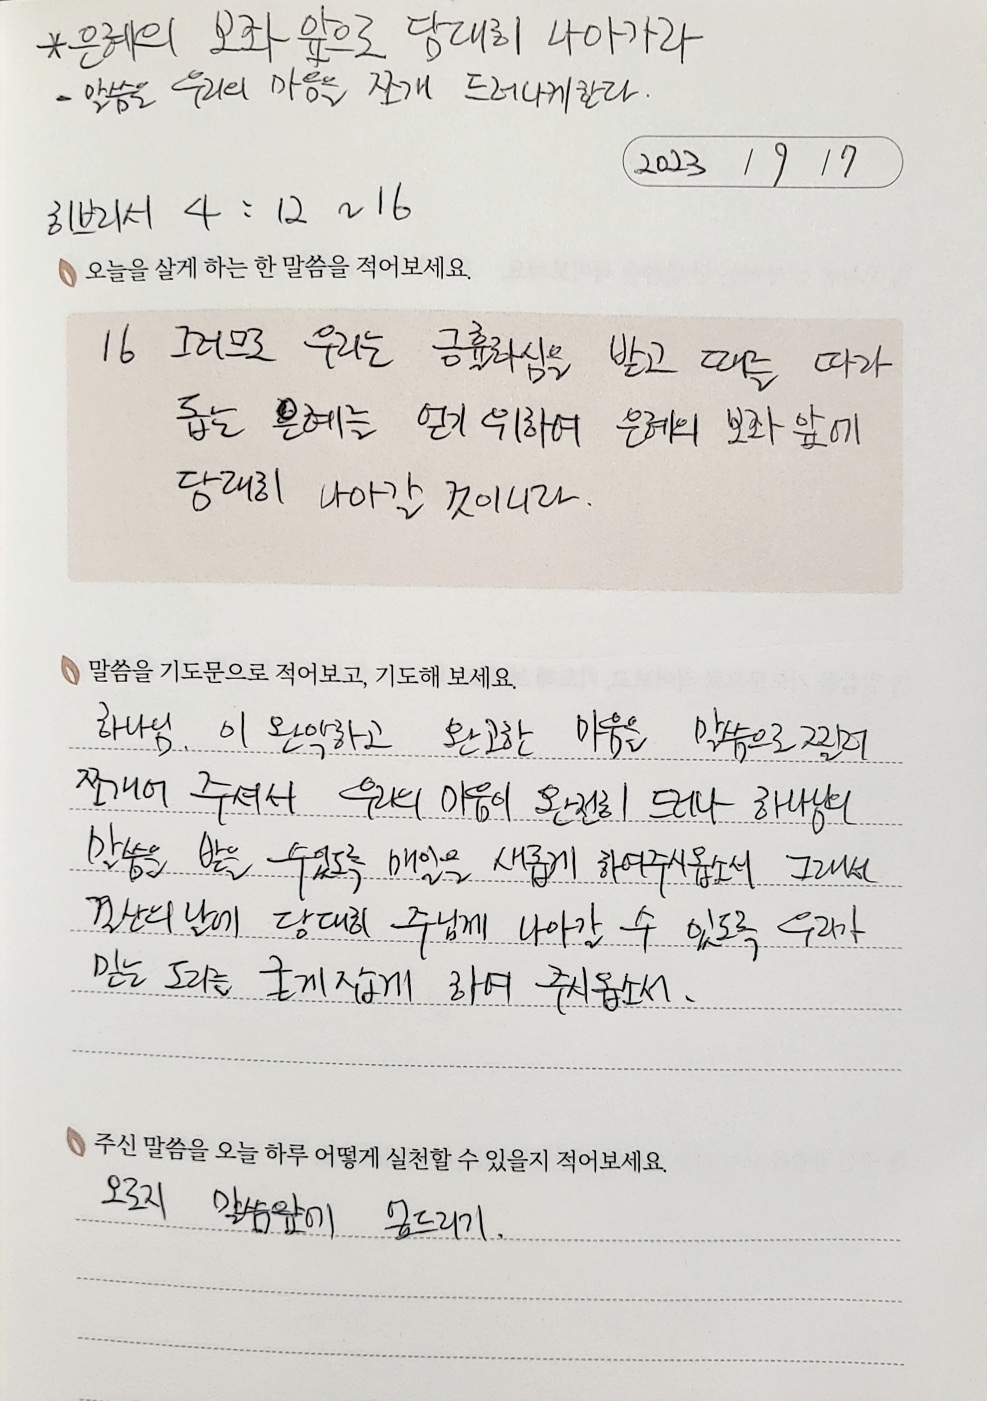 *은혜의 보좌 앞으로 담대히 나아가라
- 말씀은 우리의 마음을 쪼개 드러나게한다.
2023 / 9 / 17
히브리서 4 : 12 ~ 16
오늘을 살게 하는 한 말씀을 적어보세요.
16 그러므로 우리는 긍휼하심을 받고 때를 따라
돕는 은혜를 얻기 위하여 은혜의 보좌 앞에
담대히 나아갈 것이니라.
말씀을 기도문으로 적어보고, 기도해 보세요.
하나님. 이 완악하고 완고한 마음을 말씀으로 찔러
쪼개어 주셔서 우리의 마음이 완전히 드러나 하나님의
말씀을 받을 수있도록 매일을 새롭게 하여주시옵소서 그래서
결산의 날에 담대히 주님께 나아갈 수 있도록 우리가
믿는 도리를 굳게잡게 하여 주시옵소서.
주신 말씀을 오늘 하루 어떻게 실천할 수 있을지 적어보세요.
오로지 말씀앞에 엎드리기.